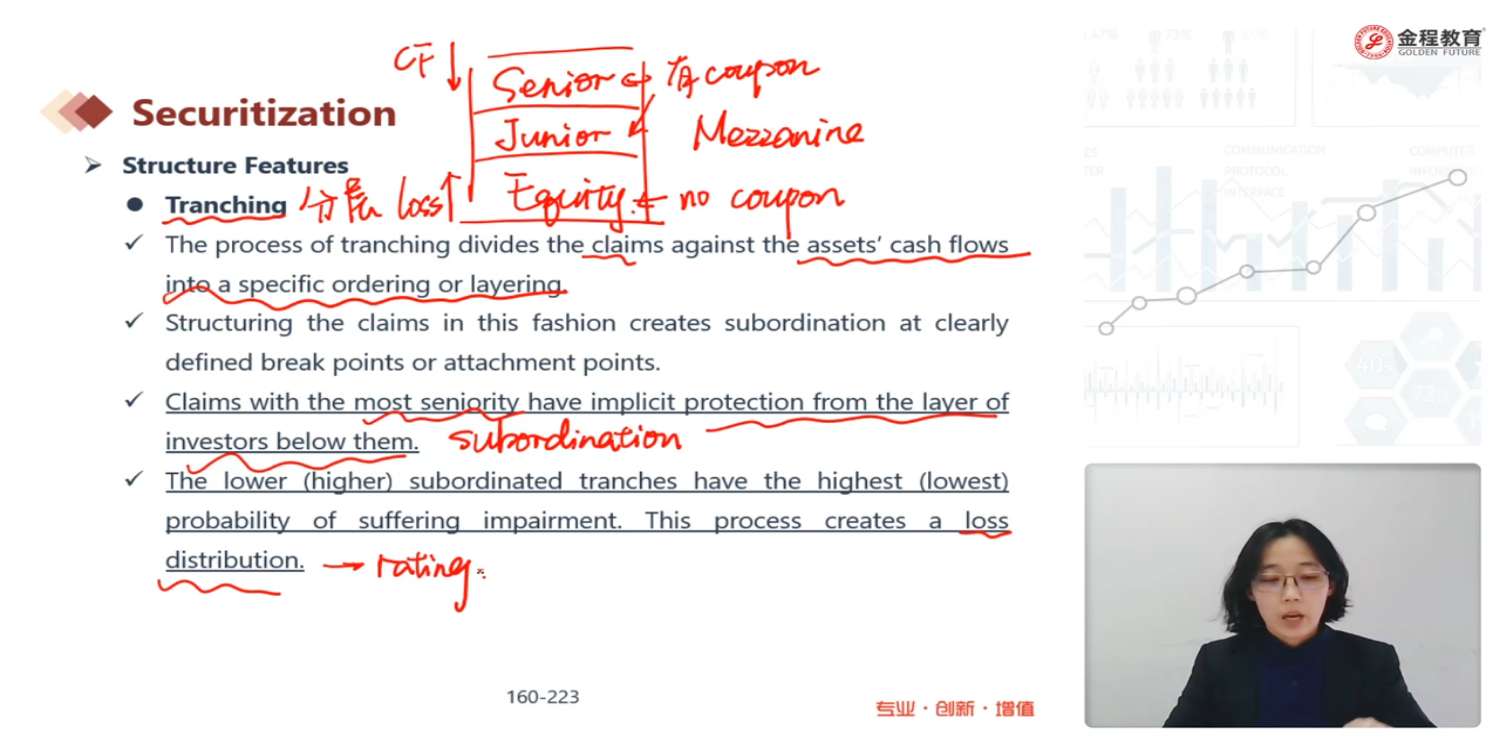 CF ↓ Senior ← 有 coupon
金程教育
GOLDEN FUTURE
Securitization
Junior Mezzanine
Structure Features
Tranching 分层 loss ↑ Equity. ← no coupon
The process of tranching divides the claims against the assets' cash flows
into a specific ordering or layering.
Structuring the claims in this fashion creates subordination at clearly
defined break points or attachment points.
Claims with the most seniority have implicit protection from the layer of
investors below them. subordination
The lower (higher) subordinated tranches have the highest (lowest)
probability of suffering impairment. This process creates a loss
distribution. → rating
160-223
专业·创新·增值
COMMUNICATION
PROTOCOL
INTERFACE